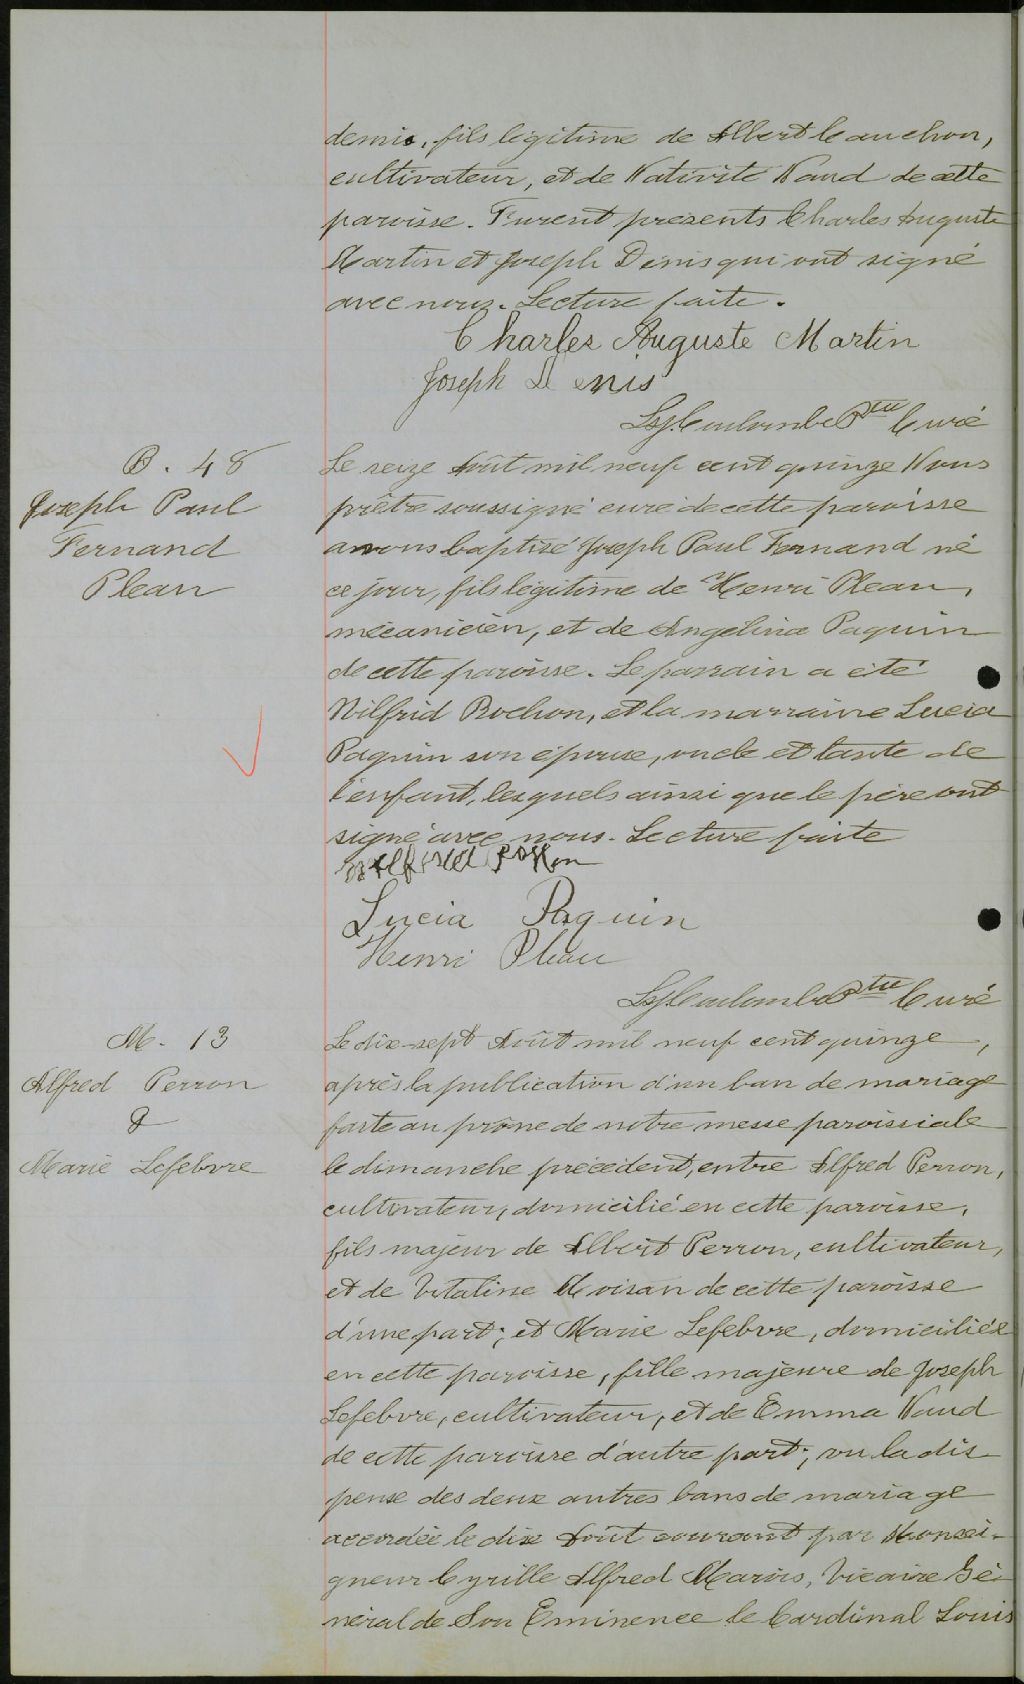 demie, fils légitime de Albert Cauchon,
cultivateur, et de Nativité Naud de cette
paroisse. Furent présents Charles Auguste
Martin et Joseph Denis qui ont signé
avec nous. Lecture faite.
Charles Auguste Martin
Joseph Denis
Coulombe Ptre Curé
B. 48
Joseph Paul
Fernand
Pleau
Le seize Août mil neuf cent quinze Nous
prêtre soussigné curé de cette paroisse
avons baptisé Joseph Paul Fernand né
ce jour, fils légitime de Henri Pleau,
mécanicien, et de Angelina Paquin
de cette paroisse. Le parrain a été
Wilfrid Rochon, et la marraine Lucia
Paquin son épouse, oncle et tante de
l'enfant, lesquels ainsi que le père ont
signé avec nous. Lecture faite
Lucia Paquin
Henri Pleau
Coulombe Ptre Curé
M. 13
Alfred Perron
&
Marie Lefebvre
Le dix-sept Août mil neuf cent quinze,
après la publication d'un ban de mariage
faite au prône de notre messe paroissiale
le dimanche précédent, entre Alfred Perron,
cultivateur, domicilié en cette paroisse,
fils majeur de Albert Perron, cultivateur,
et de Vitaline Moisan de cette paroisse
d'une part; et Marie Lefebvre, domiciliée
en cette paroisse, fille majeure de Joseph
Lefebvre, cultivateur, et de Emma Naud
de cette paroisse d'autre part; vu la dis
pense des deux autres bans de mariage
accordée le dix Août courant par Monsei-
gneur Cyrille Alfred Marois, Vicaire Gé-
néral de Son Eminence le Cardinal Louis